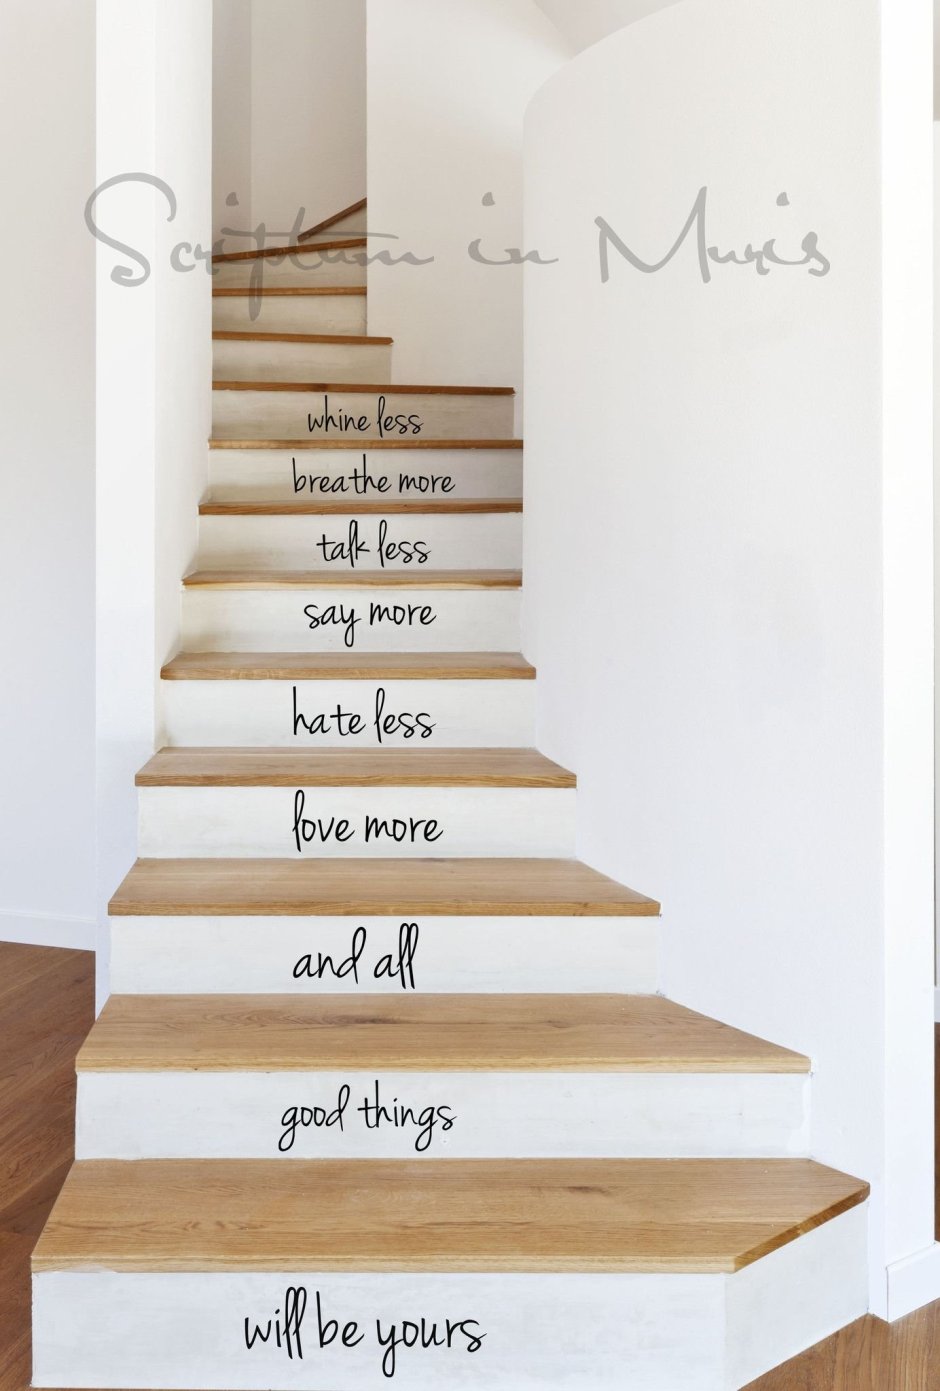 Scriptum in Muris
whine less
breathe more
talk less
say more
hate less
love more
and all
good things
will be yours